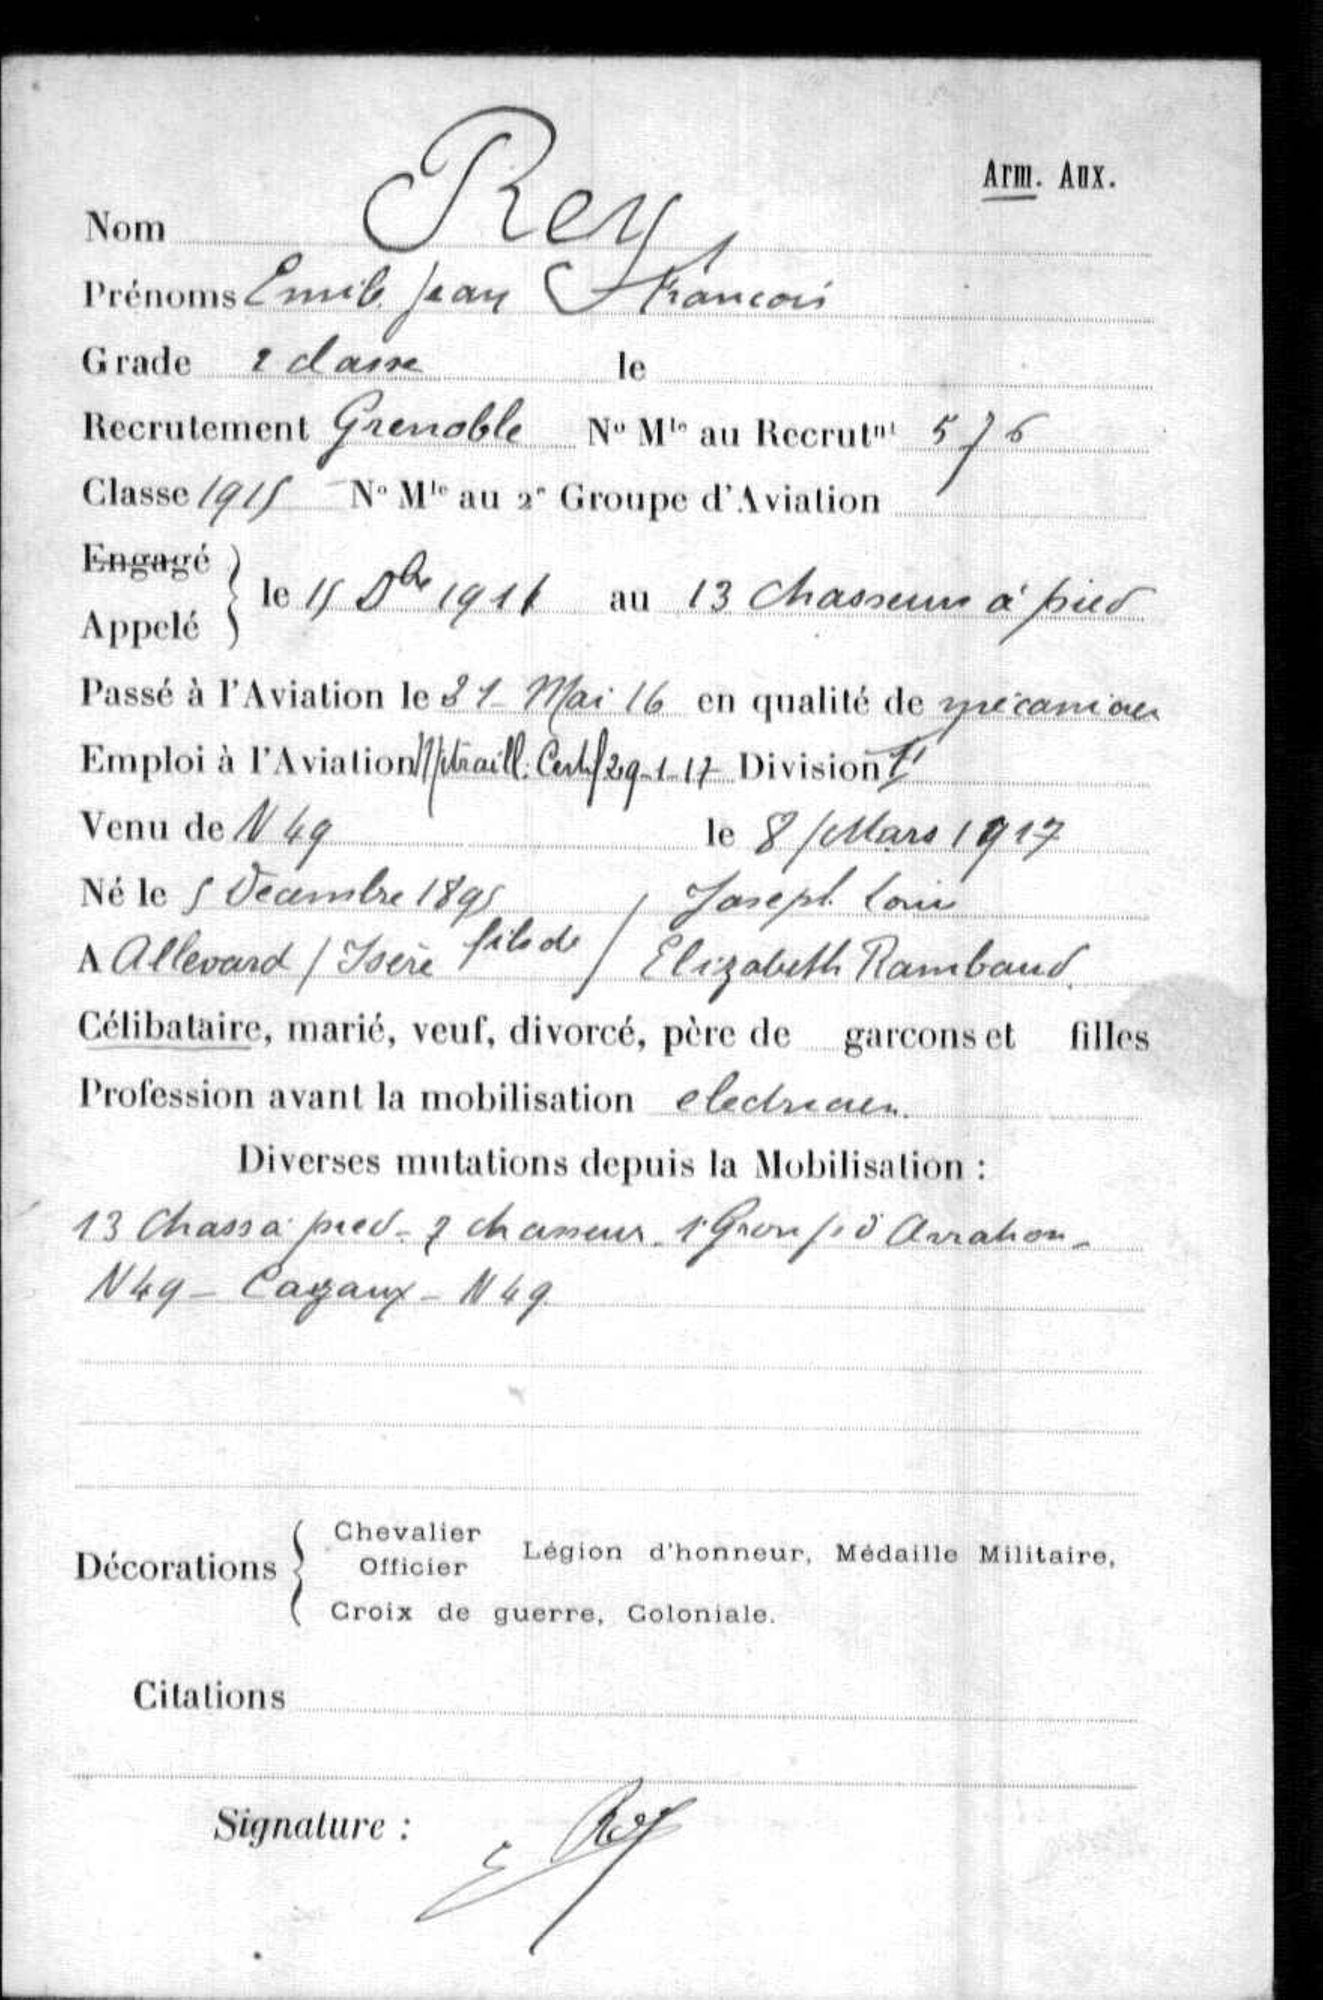 Arm. Aux.
Nom Rey
Prénoms Emile Jean François
Grade 2 classe le
Recrutement Grenoble No Mle au Recrutnt 576
Classe 1915 No Mle au 2e Groupe d'Aviation
Engagé
Appelé
le 15 Dbre 1914 au 13 Chasseurs à pied
Passé à l'Aviation le 21 Mai 16 en qualité de mécanicien
Emploi à l'Aviation Mitraill. Certif 29-1-17 Division
Venu de N 49 le 8 Mars 1917
Né le 5 Décembre 1895 Joseph Louis
A Allevard / Isère fils de / Elizabeth Rambaud
Célibataire, marié, veuf, divorcé, père de garcons et filles
Profession avant la mobilisation electricien.
Diverses mutations depuis la Mobilisation :
13 Chass à pied - 7 chasseur - 1er Groupe d'Aviation -
N49 - Cazaux - N 49
Décorations Chevalier Officier Légion d'honneur, Médaille Militaire,
Croix de guerre, Coloniale.
Citations
Signature : E Rey